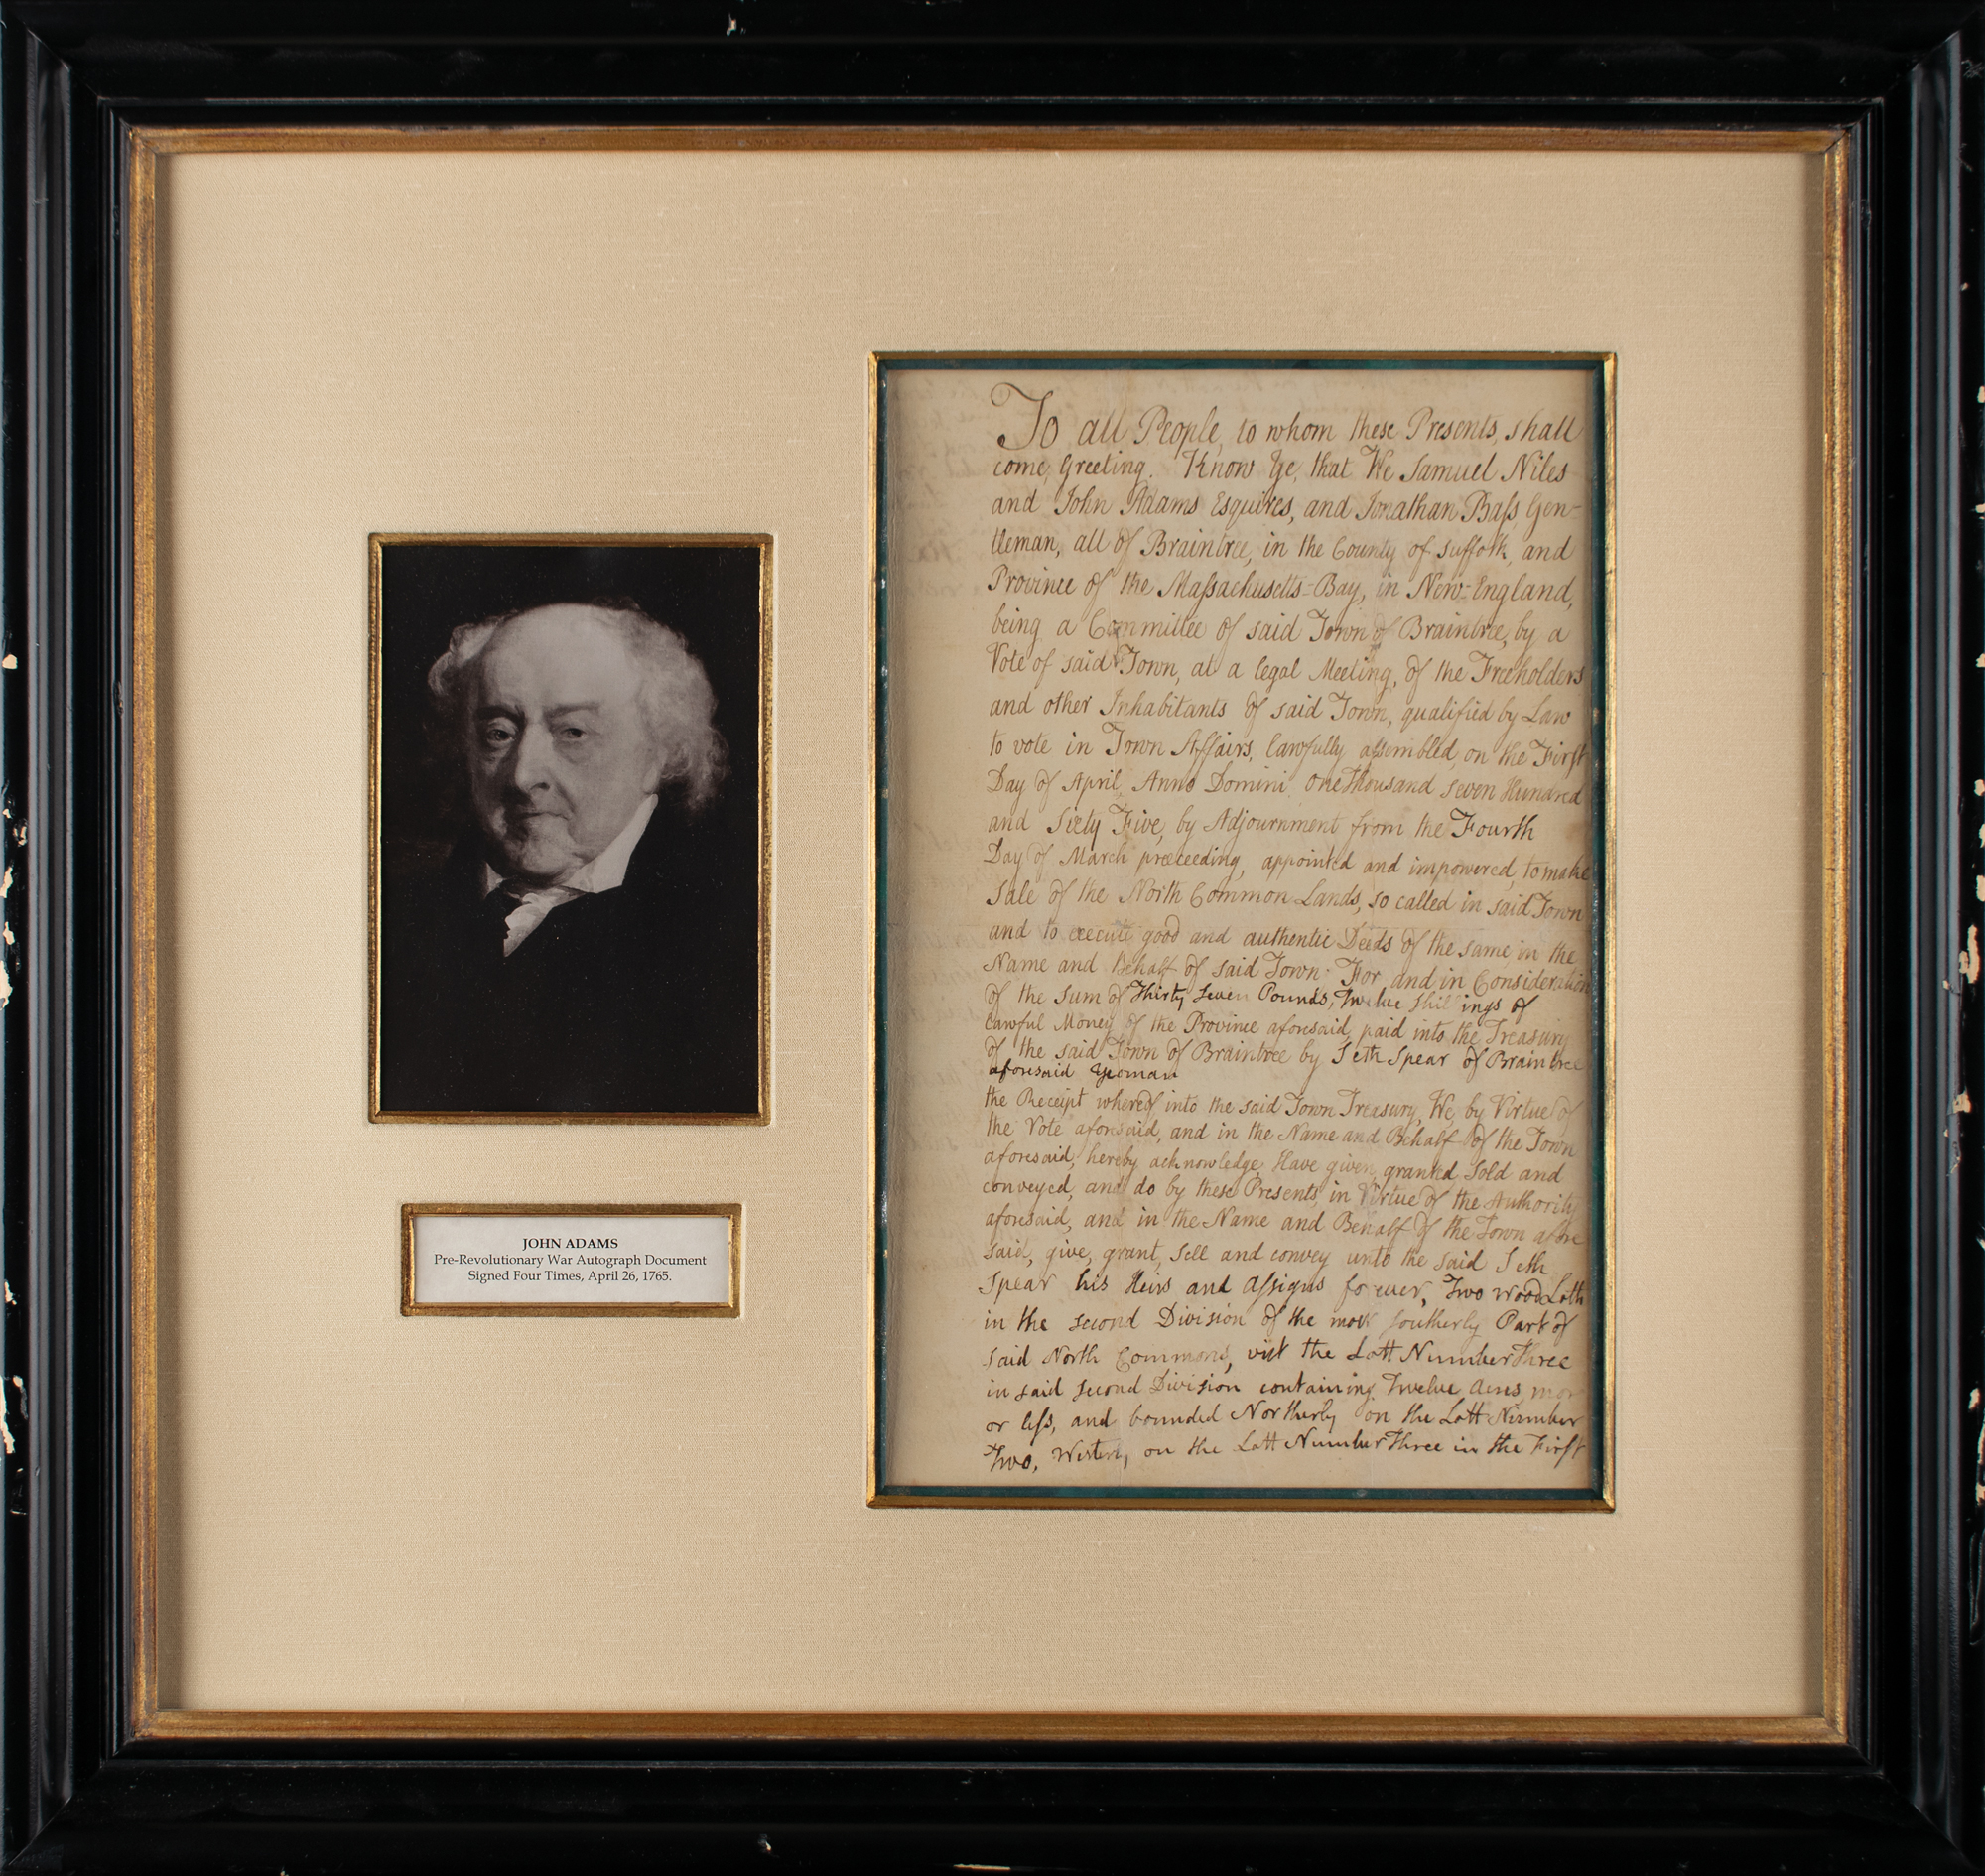 JOHN ADAMS
Pre-Revolutionary War Autograph Document
Signed Four Times, April 26, 1765.
To all People, to whom these Presents, shall
come, Greeting. Know Ye, that We Samuel Niles
and John Adams Esquires, and Jonathan Baſs Gen-
tleman, all of Braintree, in the County of Suffolk, and
Province of the Maſsachusetts-Bay, in New-England,
being a Committee of said Town of Braintree, by a
Vote of said Town, at a legal Meeting, of the Freeholders
and other Inhabitants of said Town, qualified by Law
to vote in Town Affairs, lawfully aſsembled, on the Firſt
Day of April, Anno Domini, one Thousand seven Hundred
and Sixty Five, by Adjournment from the Fourth
Day of March preceeding, appointed and impowered, to make
Sale of the North Common Lands, so called in said Town
and to execute good and authentic Deeds of the same, in the
Name and Behalf of said Town: For and in Consideration
of the Sum of Thirty Seven Pounds, Twelve Shillings of
lawful Money of the Province aforesaid, paid into the Treasury
of the said Town of Braintree by Seth Spear of Braintree
aforesaid Yeoman
the Receipt whereof into the said Town Treasury, We, by Virtue of
the Vote aforesaid, and in the Name and Behalf of the Town
aforesaid, hereby acknowledge, Have given, granted Sold and
conveyed, and do by these Presents, in Virtue of the Authority
aforesaid, and in the Name and Behalf of the Town afore
said, give, grant, sell and convey unto the said Seth
Spear his Heirs and Aſsigns forever, Two Wood Lotts
in the second Division of the most southerly Part of
said North Commons, vizt the Lott Number Three
in said second Division containing Twelve Acres more
or leſs, and bounded Northerly on the Lott Number
Two, Westerly on the Lott Number Three in the Firſt